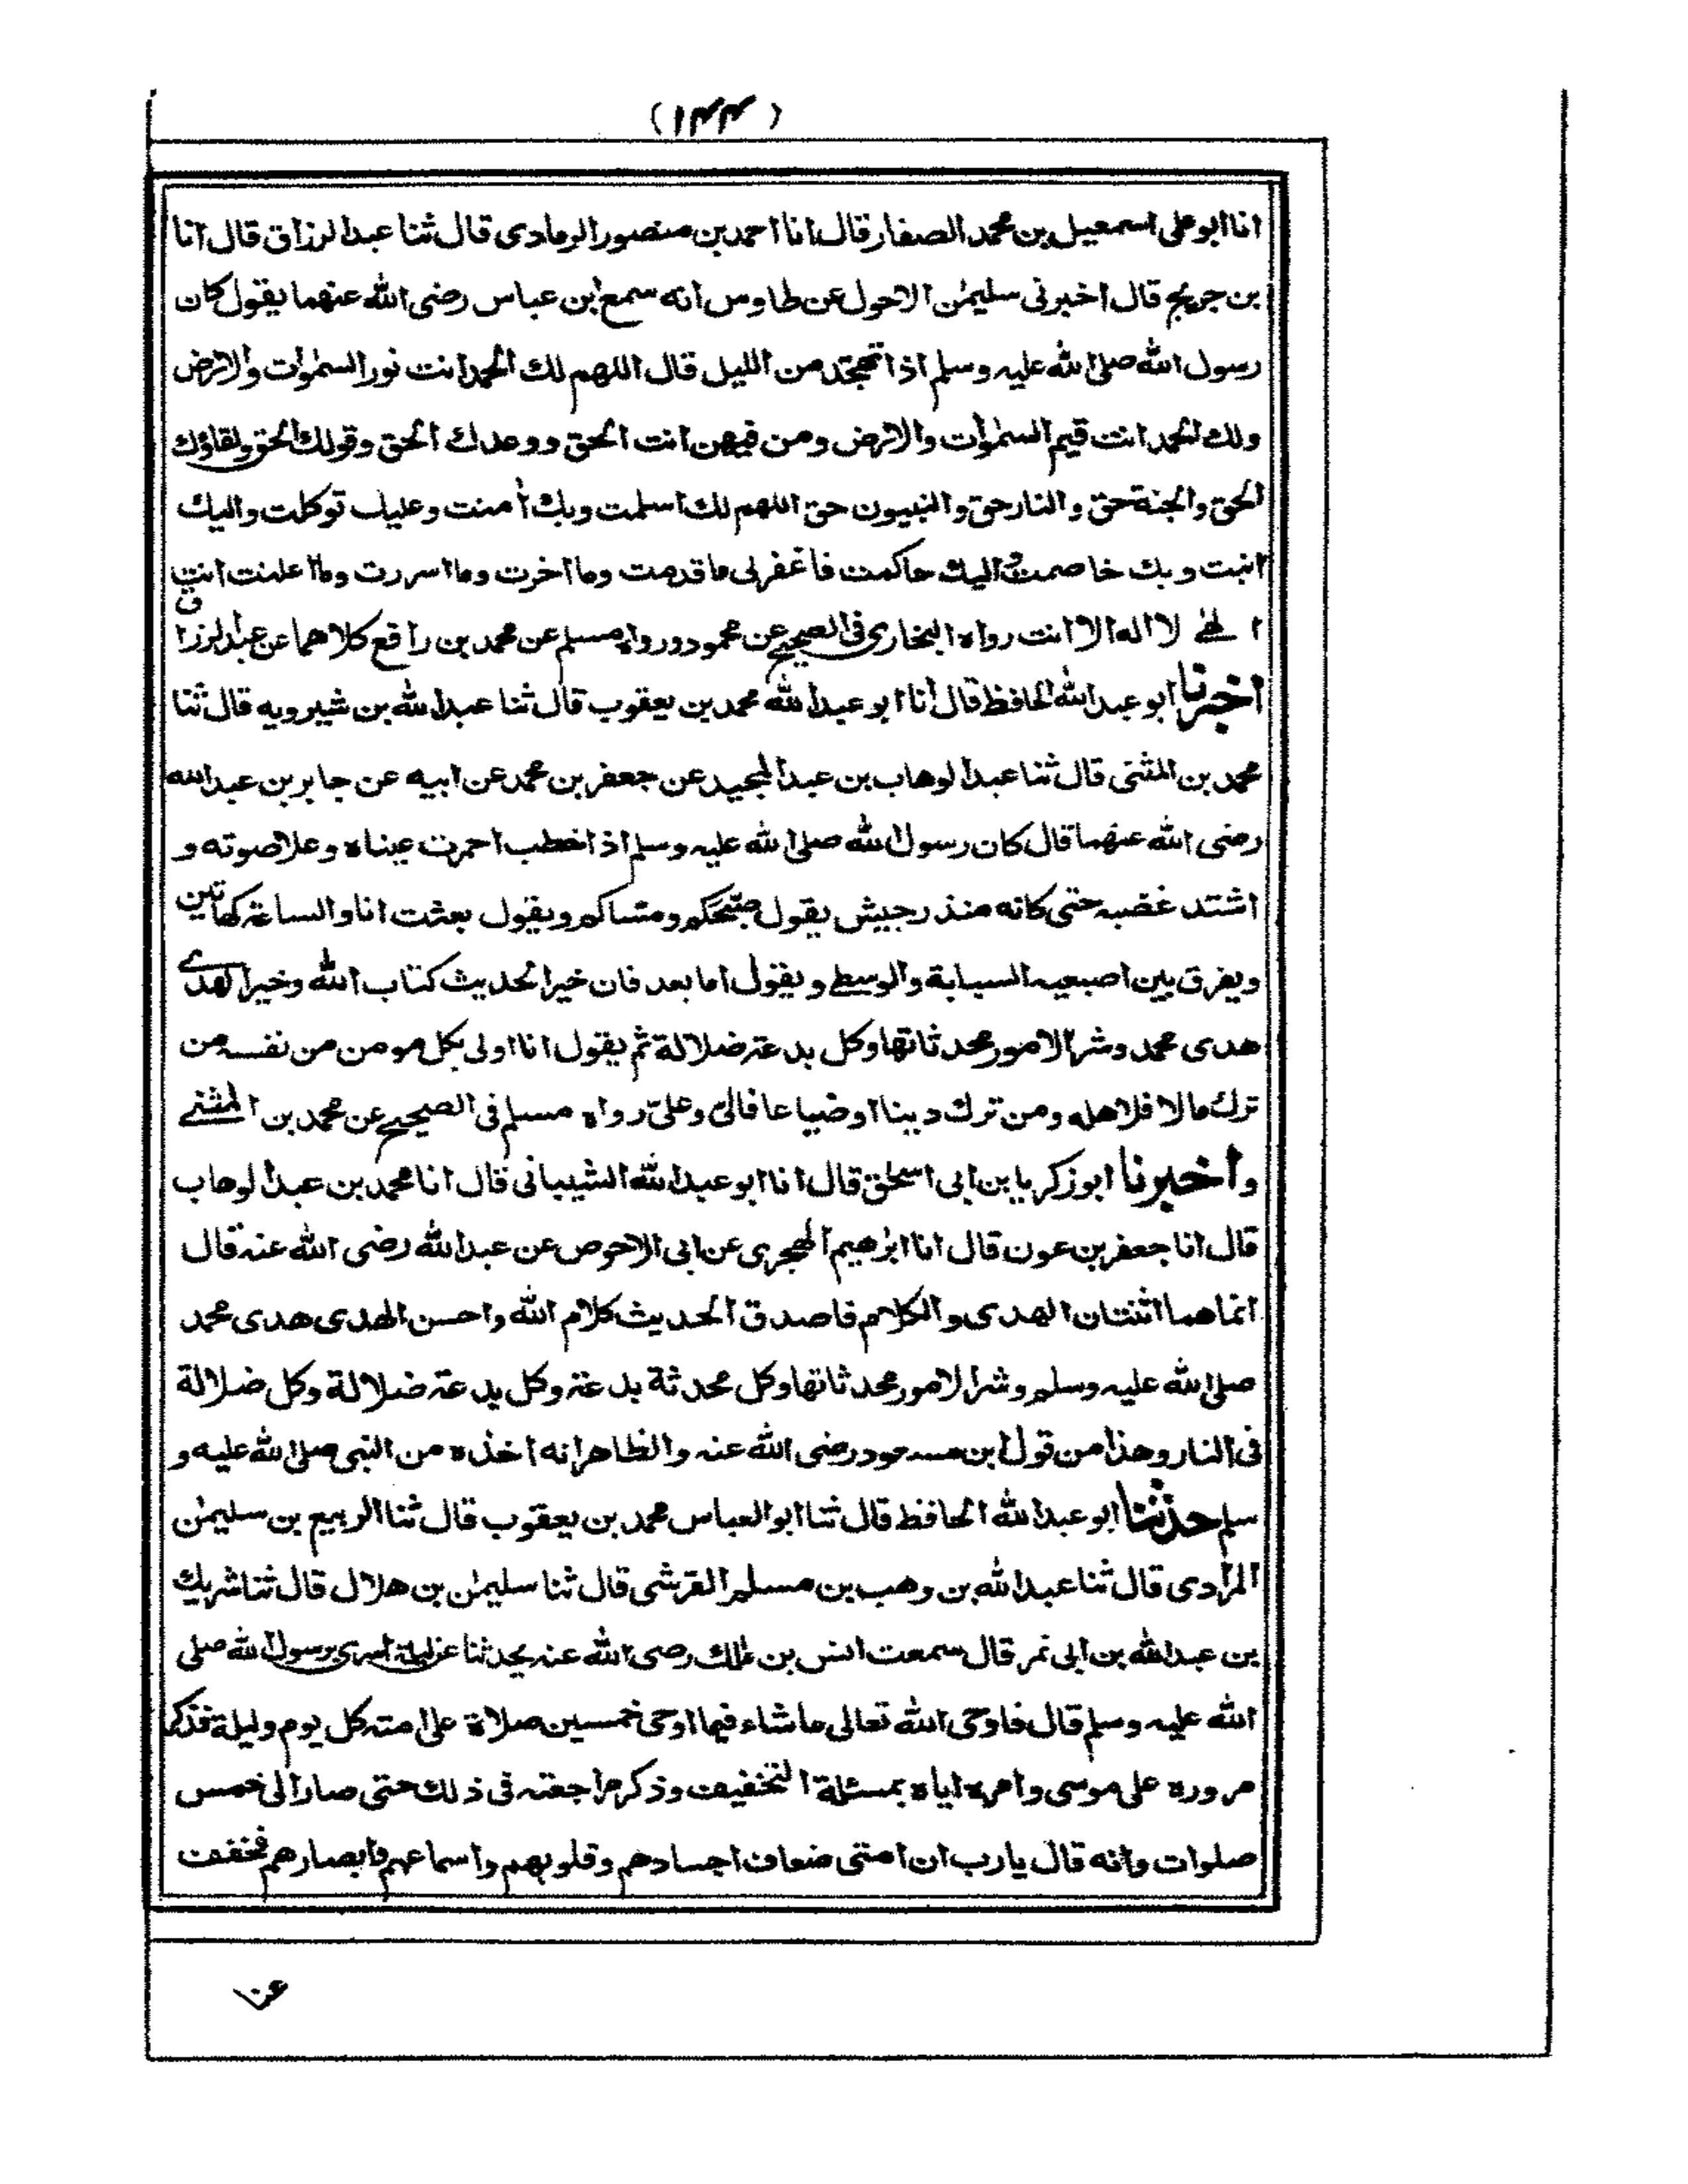 (١٤٤)
انا ابو على اسمعيل بن محمد الصفار قال انا احمد بن منصور الرمادى قال ثنا عبد الرزاق قال انا
بن جريج قال اخبرنى سليمٰن الاحول عن طاوس انه سمع ابن عباس رضى الله عنهما يقول كان
رسول الله صلى الله عليه وسلم اذا تهجّد من الليل قال اللهم لك الحمد انت نور السمٰوات والارض
ولك الحمد انت قيم السمٰوات والارض ومن فيهن انت الحق ووعدك الحق وقولك الحق ولقاؤك
الحق والجنة حق والنار حق والنبيون حق اللهم لك اسلمت وبك اٰمنت وعليك توكلت واليك
انبت وبك خاصمت واليك حاكمت فاغفر لى ما قدمت وما اخرت وما اسررت وما اعلنت انت
الٰهى لا اله الا انت رواه البخارى فى الصحيح عن محمود ورواه مسلم عن محمد بن رافع كلاهما عن عبد الرزاق
اخبرنا ابو عبد الله الحافظ قال انا ابو عبد الله محمد بن يعقوب قال ثنا عبد الله بن شيرويه قال ثنا
محمد بن المثنى قال ثنا عبد الوهاب بن عبد المجيد عن جعفر بن محمد عن ابيه عن جابر بن عبد الله
رضى الله عنهما قال كان رسول الله صلى الله عليه وسلم اذا خطب احمرت عيناه وعلا صوته و
اشتد غضبه حتى كانه منذر جيش يقول صبّحكم ومسّاكم ويقول بعثت انا والساعة كهاتين
ويفرق بين اصبعيه السبابة والوسطى ويقول اما بعد فان خير الحديث كتاب الله وخير الهدى
هدى محمد وشر الامور محدثاتها وكل بدعة ضلالة ثم يقول انا اولى بكل مومن من نفسه من
ترك مالا فلاهله ومن ترك دينا او ضياعا فالىّ وعلىّ رواه مسلم فى الصحيح عن محمد بن المثنى
واخبرنا ابو زكريا بن ابى اسحٰق قال انا ابو عبد الله الشيبانى قال انا محمد بن عبد الوهاب
قال انا جعفر بن عون قال انا ابرٰهيم الهجرى عن ابى الاحوص عن عبد الله رضى الله عنه قال
انما هما اثنتان الهدى والكلام فاصدق الحديث كلام الله واحسن الهدى هدى محمد
صلى الله عليه وسلم وشر الامور محدثاتها وكل محدثة بدعة وكل بدعة ضلالة وكل ضلالة
فى النار وهذا من قول ابن مسعود رضى الله عنه والظاهر انه اخذه من النبى صلى الله عليه و
سلم حدثنا ابو عبد الله الحافظ قال ثنا ابو العباس محمد بن يعقوب قال ثنا الربيع بن سليمٰن
المرادى قال ثنا عبد الله بن وهب بن مسلم القرشى قال ثنا سليمٰن بن هلال قال ثنا شريك
بن عبد الله بن ابى نمر قال سمعت انس بن مٰلك رضى الله عنه يحدثنا عن ليلة اسرى برسول الله صلى
الله عليه وسلم قال فاوحى الله تعالى ما شاء فيما اوحى خمسين صلاة على امته كل يوم وليلة فذكر
مروره على موسى وامره اياه بمسئلة التخفيف وذكر مراجعته فى ذلك حتى صار الى خمس
صلوات وانه قال يا رب ان امتى ضعاف اجسادهم وقلوبهم واسماعهم وابصارهم فخفف
عنا